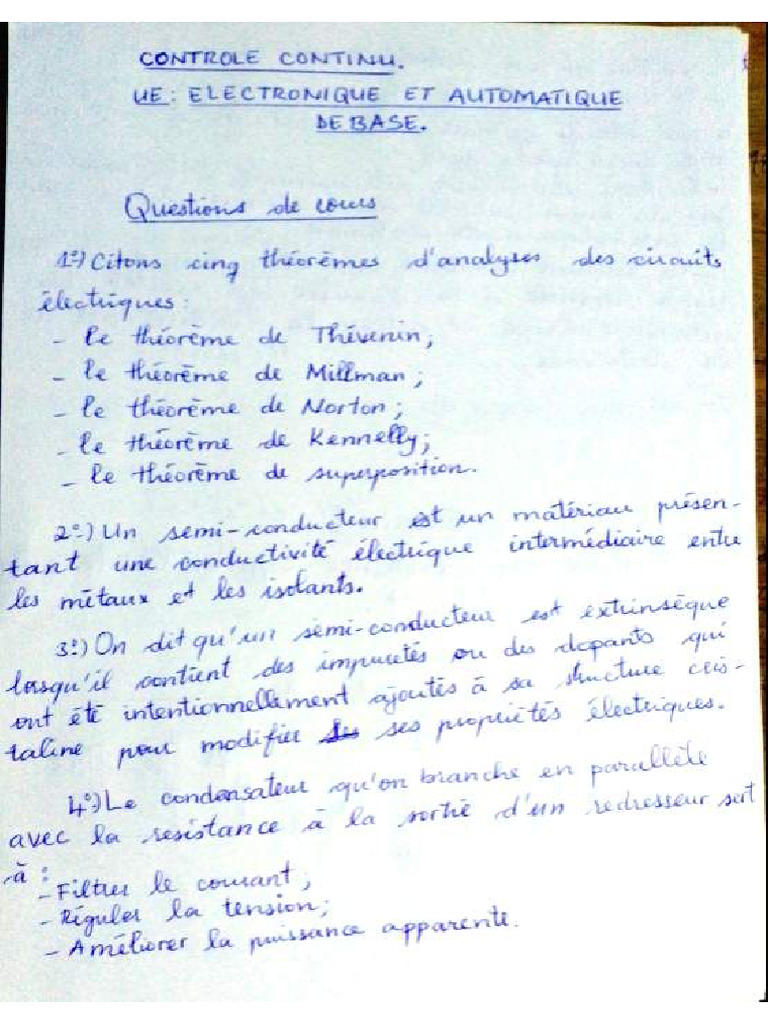 CONTROLE CONTINU.
UE: ELECTRONIQUE ET AUTOMATIQUE
DE BASE.
Questions de cours
1°) Citons cinq théorèmes d'analyses des circuits
électriques:
- le théorème de Thévenin;
- le théorème de Millman;
- le théorème de Norton;
- le théorème de Kennelly;
- le théorème de superposition.
2°) Un semi-conducteur est un matériau présen-
tant une conductivité électrique intermédiaire entre
les métaux et les isolants.
3°) On dit qu'un semi-conducteur est extrinsèque
lorsqu'il contient des impuretés ou des dopants qui
ont été intentionnellement ajoutés à sa structure cris-
taline pour modifier ses propriétés électriques.
4°) Le condensateur qu'on branche en parallèle
avec la resistance à la sortie d'un redresseur sert
à:
- Filtrer le courant;
- Réguler la tension;
- Améliorer la puissance apparente.